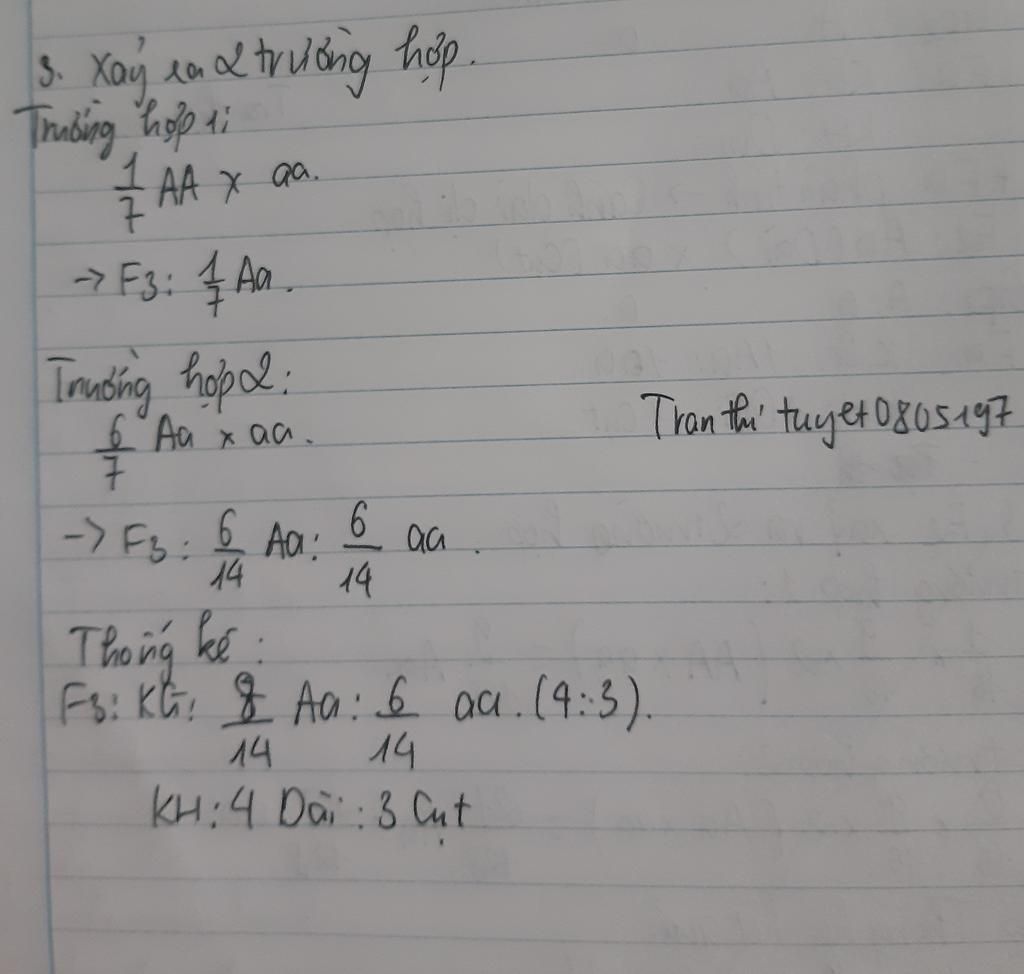 3. Xảy ra 2 trường hợp.
Trường hợp 1:
1/7 AA x aa.
-> F3: 1/7 Aa.
Trường hợp 2:
6/7 Aa x aa.
Tran thi tuyet 0805197
-> F3: 6/14 Aa: 6/14 aa.
Thống kê:
F3: KG: 8/14 Aa: 6/14 aa. (4:3).
KH: 4 Dài: 3 Cụt